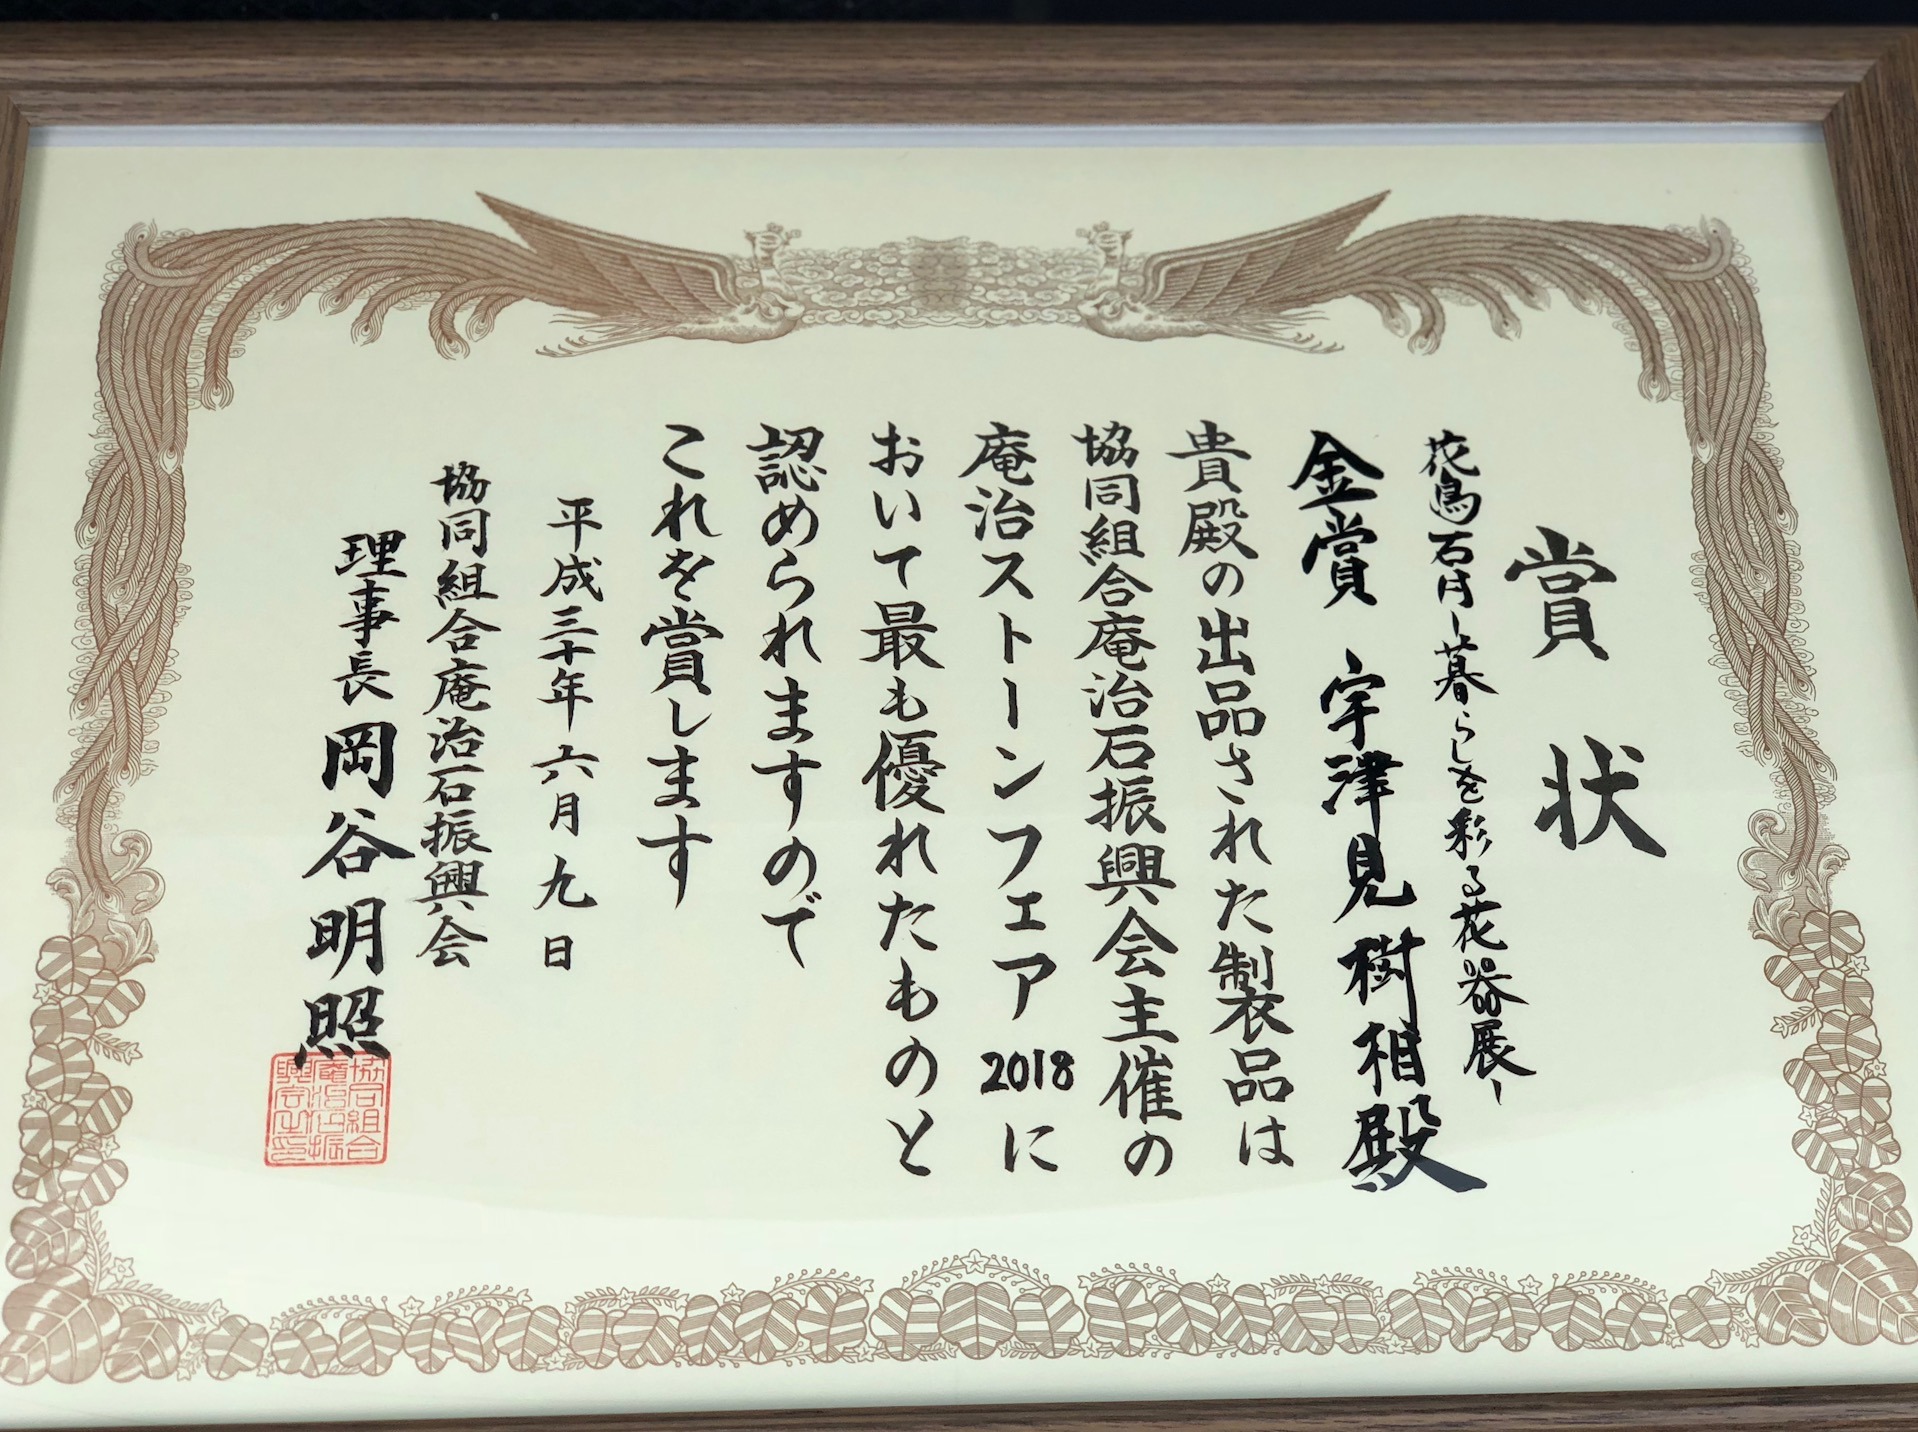 賞状
花鳥石月ー暮らしを彩る花器展ー
金賞 宇津見樹相殿
貴殿の出品された製品は
協同組合庵治石振興会主催の
庵治ストーンフェア2018に
おいて最も優れたものと
認められますので
これを賞します
平成三十年六月九日
協同組合庵治石振興会
理事長 岡谷明照
協同組合
庵治石振
興会之印